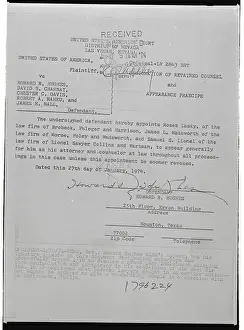 RECEIVED
UNITED STATES DISTRICT COURT
DISTRICT OF NEVADA
LAS VEGAS, NEVADA
UNITED STATES OF AMERICA
Plaintiff,
vs
DESIGNATION OF RETAINED COUNSEL
and
APPEARANCE PRAECIPE
HOWARD R. HUGHES,
DAVID B. CHARNAY,
CHESTER C. DAVIS,
ROBERT A. MAHEU, and
JAMES H. NALL,
Defendant.
The undersigned defendant hereby appoints Rosee Lasky, of the
law firm of Brobeck, Phleger and Harrison, James L. Wadsworth of the
law firm of Morse, Foley and Wadsworth, and Samuel S. Lionel of the
law firm of Lionel Sawyer Collins and Wartman, to appear generally
for him as his attorney and counselor at law throughout all proceed-
ings in this case unless this appointment be sooner revoked.
Dated this 27th day of January, 1974.
HOWARD R. HUGHES
25th Floor, Exxon Building
Address
Houston, Texas
77002
Zip Code Telephone